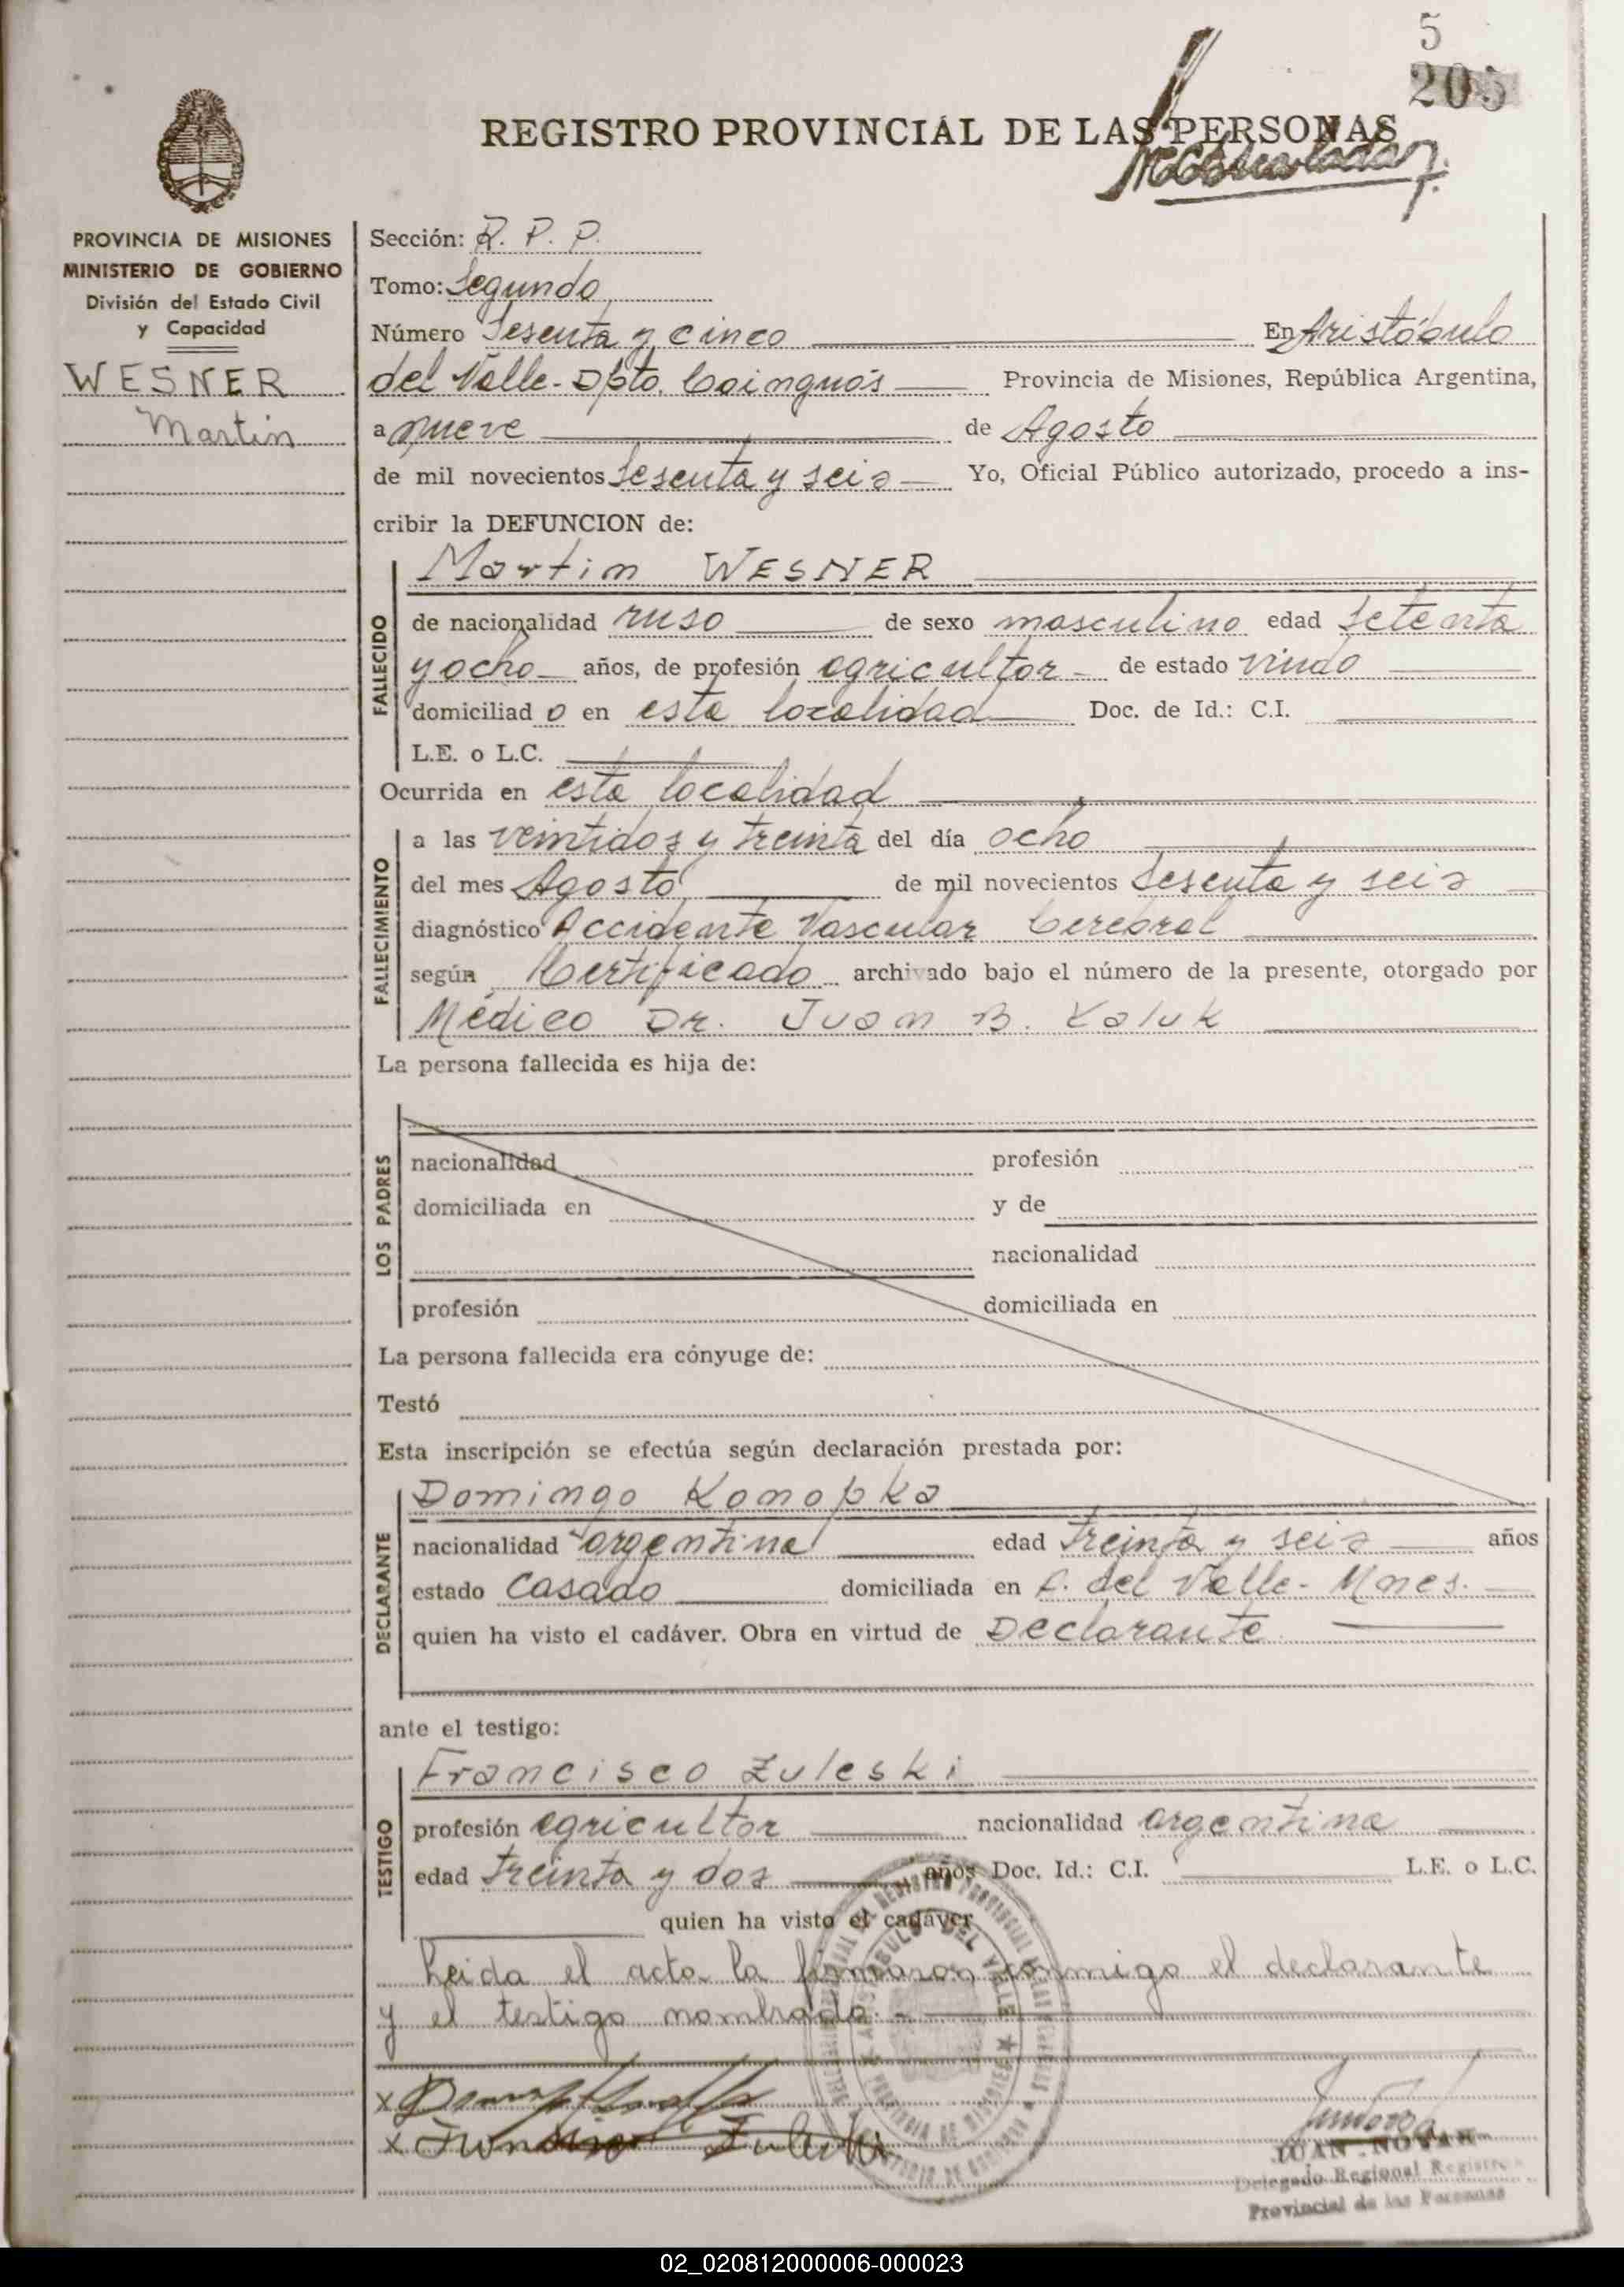 5
205
REGISTRO PROVINCIAL DE LAS PERSONAS
PROVINCIA DE MISIONES
MINISTERIO DE GOBIERNO
División del Estado Civil
y Capacidad
WESNER
Martin
Sección: R. P. P.
Tomo: Segundo
Número Sesenta y cinco En Aristóbulo
del Valle - Dpto. Cainguás Provincia de Misiones, República Argentina,
a nueve de Agosto
de mil novecientos Sesenta y seis Yo, Oficial Público autorizado, procedo a ins-
cribir la DEFUNCION de:
FALLECIDO
Martin WESNER
de nacionalidad ruso de sexo masculino edad setenta
y ocho años, de profesión agricultor de estado viudo
domiciliad o en esta localidad Doc. de Id.: C.I.
L.E. o L.C.
Ocurrida en esta localidad
FALLECIMIENTO
a las veintidos y treinta del día ocho
del mes Agosto de mil novecientos Sesenta y seis
diagnóstico Accidente Vascular Cerebral
según Certificado archivado bajo el número de la presente, otorgado por
Médico Dr. Juan B. Kaluk
La persona fallecida es hija de:
LOS PADRES
nacionalidad profesión
domiciliada en y de
nacionalidad
profesión domiciliada en
La persona fallecida era cónyuge de:
Testó
Esta inscripción se efectúa según declaración prestada por:
DECLARANTE
Domingo Konopka
nacionalidad argentina edad treinta y seis años
estado Casado domiciliada en A. del Valle - Mnes.
quien ha visto el cadáver. Obra en virtud de Declarante
ante el testigo:
TESTIGO
Francisco Zuleski
profesión agricultor nacionalidad argentina
edad treinta y dos años Doc. Id.: C.I. L.E. o L.C.
quien ha visto el cadáver
Leida el acta la firmaron conmigo el declarante
y el testigo nombrado.-
JUAN NOVAK
Delegado Regional Registro
Provincial de las Personas
02_020812000006-000023